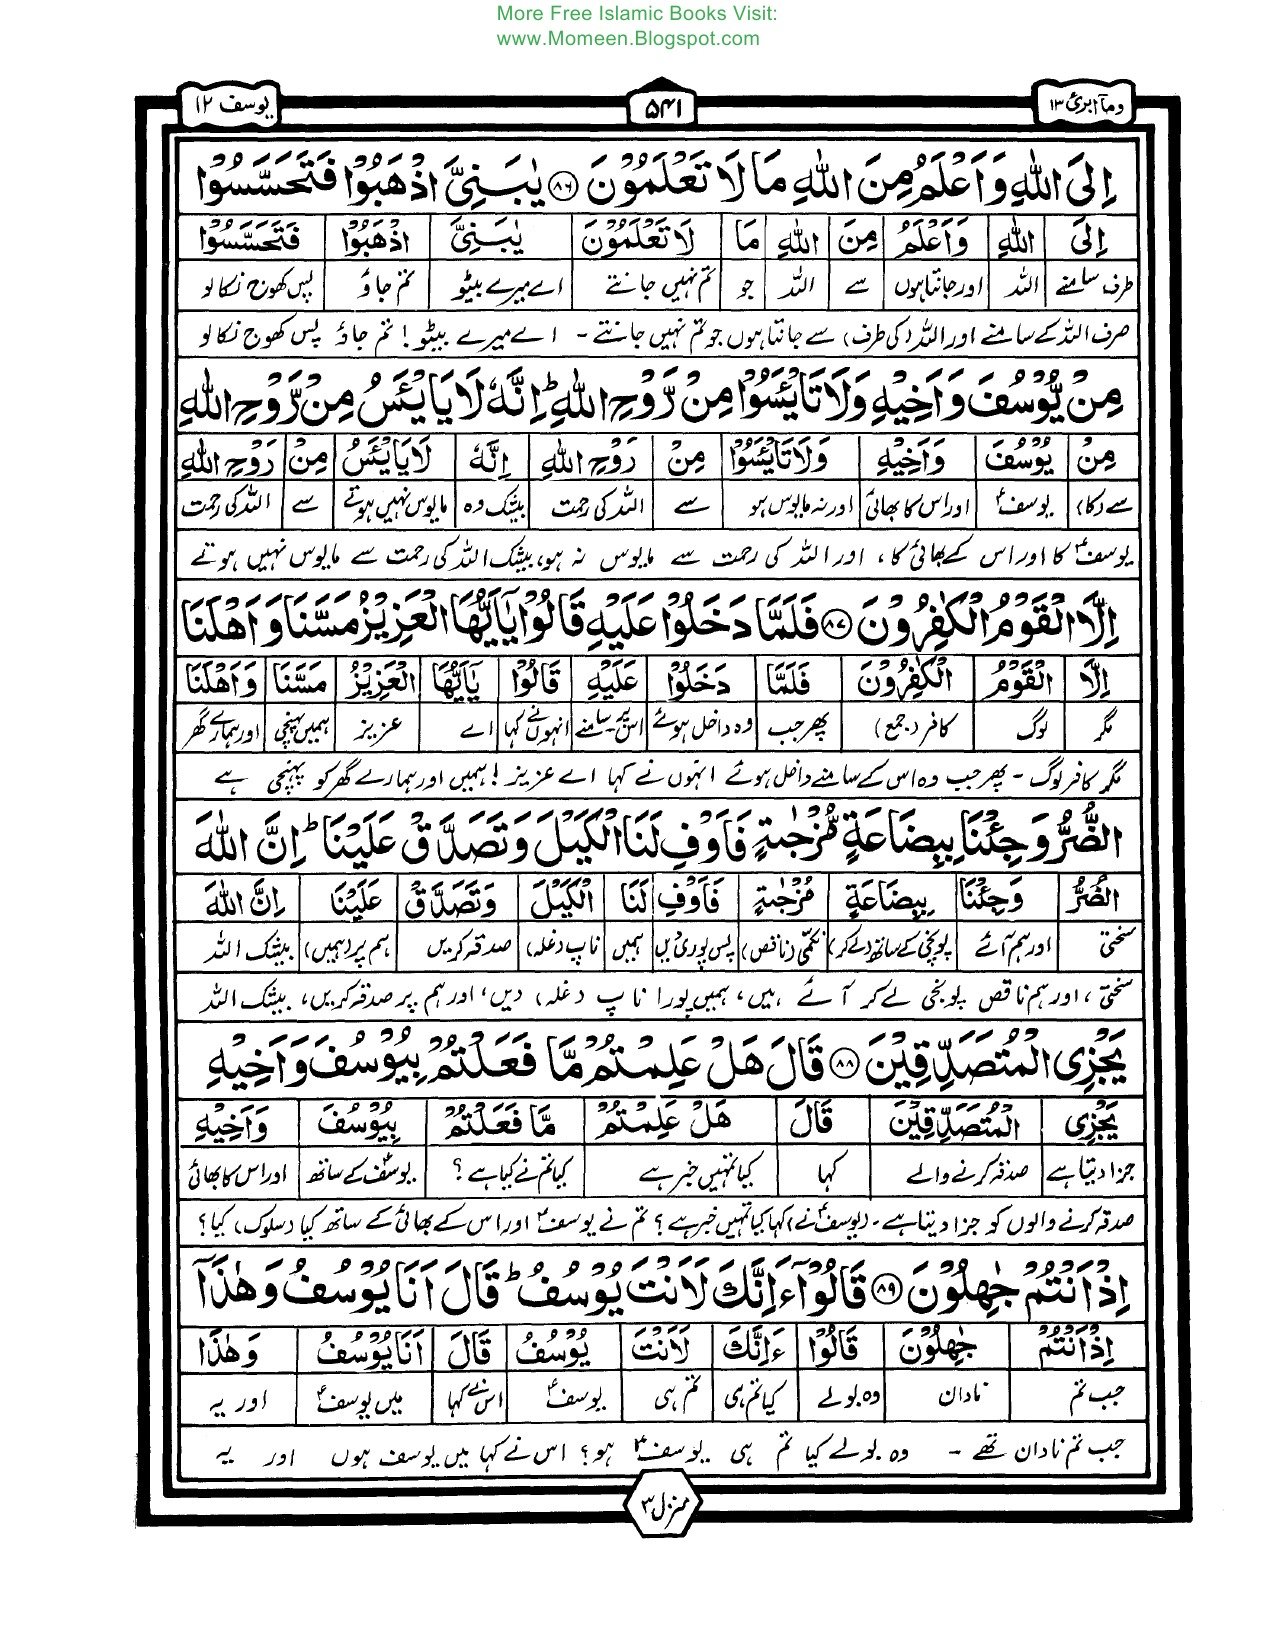 More Free Islamic Books Visit:
www.Momeen.Blogspot.com
وماۤ ابرئ ۱۳
۵۴۱
یوسف ۱۲
اِلَى اللّٰهِ وَاَعْلَمُ مِنَ اللّٰهِ مَا لَا تَعْلَمُوْنَ ۸۶ يٰبَنِيَّ اذْهَبُوْا فَتَحَسَّسُوْا
اِلَى اللّٰهِ وَاَعْلَمُ مِنَ اللّٰهِ مَا لَا تَعْلَمُوْنَ يٰبَنِيَّ اذْهَبُوْا فَتَحَسَّسُوْا
طرف سامنے اللہ اور جانتا ہوں سے اللہ جو تم نہیں جانتے اے میرے بیٹو تم جاؤ پس کھوج نکالو
صرف اللہ کے سامنے اور اللہ (کی طرف) سے جانتا ہوں جو تم نہیں جانتے - اے میرے بیٹو! تم جاؤ پس کھوج نکالو
مِنْ يُّوْسُفَ وَاَخِيْهِ وَلَا تَايْـَٔسُوْا مِنْ رَّوْحِ اللّٰهِ ؕ اِنَّهٗ لَا يَايْـَٔسُ مِنْ رَّوْحِ اللّٰهِ
مِنْ يُوْسُفَ وَاَخِيْهِ وَلَا تَايْـَٔسُوْا مِنْ رَوْحِ اللّٰهِ اِنَّهٗ لَا يَايْـَٔسُ مِنْ رَوْحِ اللّٰهِ
سے (کا) یوسفؑ اور اس کا بھائی اور نہ مایوس ہو سے اللہ کی رحمت بیشک وہ مایوس نہیں ہوتے سے اللہ کی رحمت
یوسفؑ کا اور اس کے بھائی کا، اور اللہ کی رحمت سے مایوس نہ ہو، بیشک اللہ کی رحمت سے مایوس نہیں ہوتے
اِلَّا الْقَوْمُ الْكٰفِرُوْنَ ۸۷ فَلَمَّا دَخَلُوْا عَلَيْهِ قَالُوْا يٰۤاَيُّهَا الْعَزِيْزُ مَسَّنَا وَاَهْلَنَا
اِلَّا الْقَوْمُ الْكٰفِرُوْنَ فَلَمَّا دَخَلُوْا عَلَيْهِ قَالُوْا يٰۤاَيُّهَا الْعَزِيْزُ مَسَّنَا وَاَهْلَنَا
مگر لوگ کافر (جمع) پھر جب وہ داخل ہوئے اس کے سامنے انہوں نے کہا اے عزیز ہمیں پہنچی اور ہمارے گھر
مگر کافر لوگ - پھر جب وہ اس کے سامنے داخل ہوئے انہوں نے کہا اے عزیز! ہمیں اور ہمارے گھر کو پہنچی ہے
الضُّرُّ وَجِئْنَا بِبِضَاعَةٍ مُّزْجٰىةٍ فَاَوْفِ لَنَا الْكَيْلَ وَتَصَدَّقْ عَلَيْنَا ؕ اِنَّ اللّٰهَ
الضُّرُّ وَجِئْنَا بِبِضَاعَةٍ مُزْجٰىةٍ فَاَوْفِ لَنَا الْكَيْلَ وَتَصَدَّقْ عَلَيْنَا اِنَّ اللّٰهَ
سختی اور ہم آئے پونجی کے ساتھ (لے کر) نکمی (ناقص) پس پوری دیں ہمیں ناپ (غلہ) صدقہ کریں ہم پر (ہمیں) بیشک اللہ
سختی، اور ہم ناقص پونجی لے کر آئے ہیں، ہمیں پورا ناپ (غلہ) دیں، اور ہم پر صدقہ کریں، بیشک اللہ
يَجْزِى الْمُتَصَدِّقِيْنَ ۸۸ قَالَ هَلْ عَلِمْتُمْ مَّا فَعَلْتُمْ بِيُوْسُفَ وَاَخِيْهِ
يَجْزِى الْمُتَصَدِّقِيْنَ قَالَ هَلْ عَلِمْتُمْ مَّا فَعَلْتُمْ بِيُوْسُفَ وَاَخِيْهِ
جزا دیتا ہے صدقہ کرنے والے کہا کیا تمہیں خبر ہے کیا تم نے کیا ہے؟ یوسفؑ کے ساتھ اور اس کا بھائی
صدقہ کرنے والوں کو جزا دیتا ہے - (یوسفؑ نے) کہا کیا تمہیں خبر ہے؟ تم نے یوسفؑ اور اس کے بھائی کے ساتھ کیا (سلوک) کیا؟
اِذْ اَنْتُمْ جٰهِلُوْنَ ۸۹ قَالُوْۤا ءَاِنَّكَ لَاَنْتَ يُوْسُفُ ؕ قَالَ اَنَا يُوْسُفُ وَهٰذَاۤ
اِذْ اَنْتُمْ جٰهِلُوْنَ قَالُوْا ءَاِنَّكَ لَاَنْتَ يُوْسُفُ قَالَ اَنَا يُوْسُفُ وَهٰذَا
جب تم نادان وہ بولے کیا تم ہی تم ہی یوسفؑ اس نے کہا میں یوسفؑ اور یہ
جب تم نادان تھے - وہ بولے کیا تم ہی یوسفؑ ہو؟ اس نے کہا میں یوسف ہوں اور یہ
منزل ۳